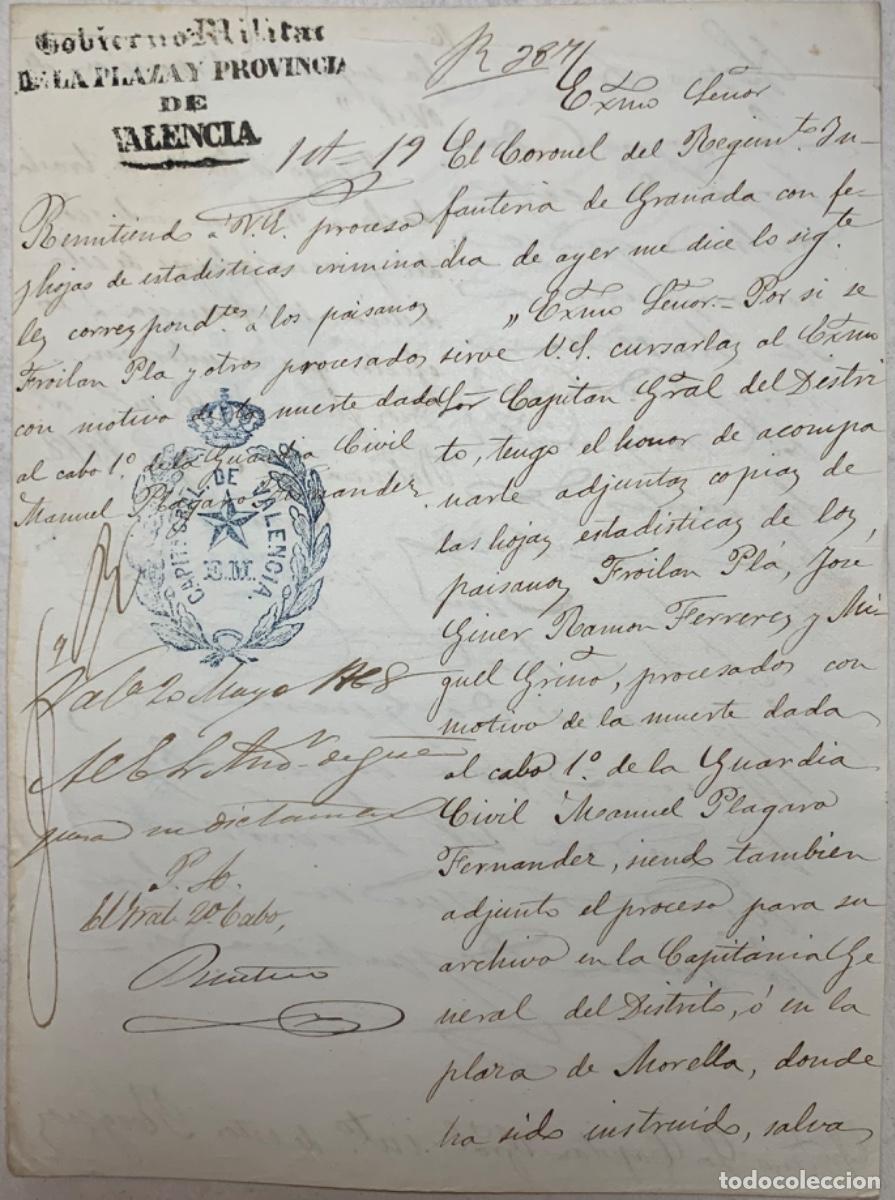 Gobierno Militar
DE LA PLAZA Y PROVINCIA
DE
VALENCIA
R 2871
Exmo Señor
19
Remitiendo á V.E. proceso
y hojas de estadisticas crimina
les correspond.tes á los paisanos
Froilan Plá y otros procesados
con motivo de la muerte dada
al cabo 1º. de la Guardia Civil
Manuel Plágaro Fernandez
CAPIT. GRAL. DE VALENCIA.
E.M.
20 Mayo 1868
para su dictamen
P. A.
El Gral. 2º Cabo,
El Coronel del Regim.to In-
fanteria de Granada con fe-
cha de ayer me dice lo sig.te
"Exmo Señor.= Por si se
sirve V.E. cursarlas al Exmo
Sor Capitan Gral del Distri
to, tengo el honor de acompa
ñarle adjuntas copias de
las hojas estadisticas de los
paisanos Froilan Plá, José
Giner Ramon Ferreres y Mi-
guel Griño, procesados con
motivo de la muerte dada
al cabo 1º. de la Guardia
Civil Manuel Plagaro
Fernandez, siendo tambien
adjunto el proceso para su
archivo en la Capitania Ge
neral del Distrito, ó en la
plaza de Morella, donde
ha sido instruido, salva
todocoleccion.net